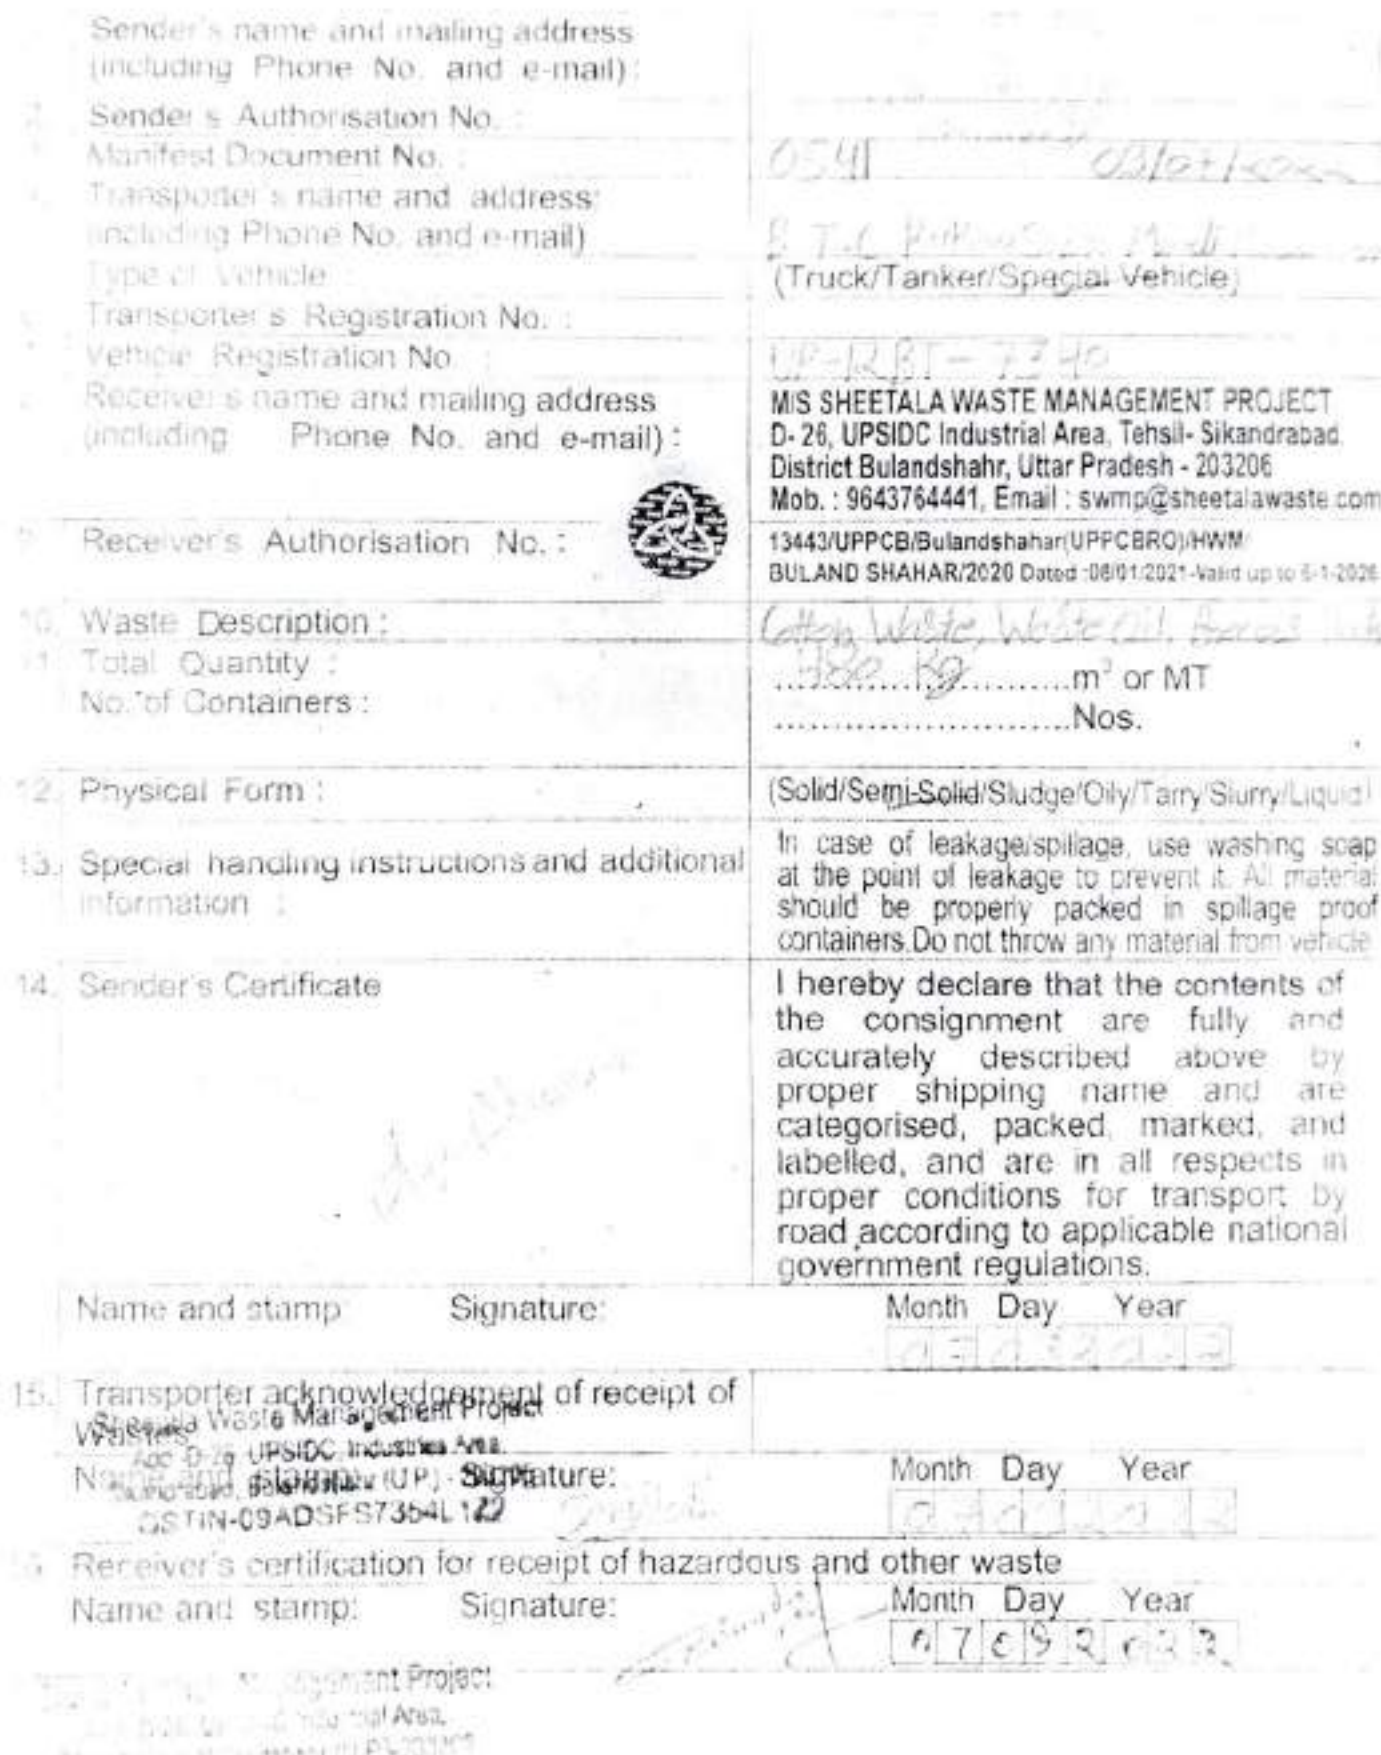 Sender's name and mailing address
(including Phone No. and e-mail) :
Sender's Authorisation No. :
Manifest Document No. : 0541
Transporter's name and address:
(including Phone No. and e-mail)
Type of Vehicle : (Truck/Tanker/Special Vehicle)
Transporter's Registration No. :
Vehicle Registration No. : UP-12BT-7340
Receiver's name and mailing address
(including Phone No. and e-mail) :
M/S SHEETALA WASTE MANAGEMENT PROJECT
D- 26, UPSIDC Industrial Area, Tehsil- Sikandrabad
District Bulandshahr, Uttar Pradesh - 203206
Mob. : 9643764441, Email : swmp@sheetalawaste.com
9. Receiver's Authorisation No. :
13443/UPPCB/Bulandshahar(UPPCBRO)/HWM/
BULAND SHAHAR/2020 Dated :06/01/2021-Valid up to 5-1-2026
10. Waste Description : Cotton Waste, Waste Oil,
11. Total Quantity : Kg m³ or MT
No. of Containers : Nos.
12. Physical Form : (Solid/Semi-Solid/Sludge/Oily/Tarry/Slurry/Liquid)
13. Special handling instructions and additional
information :
In case of leakage/spillage, use washing soap
at the point of leakage to prevent it. All material
should be properly packed in spillage proof
containers.Do not throw any material from vehicle
14. Sender's Certificate
I hereby declare that the contents of
the consignment are fully and
accurately described above by
proper shipping name and are
categorised, packed, marked, and
labelled, and are in all respects in
proper conditions for transport by
road according to applicable national
government regulations.
Name and stamp Signature: Month Day Year
15. Transporter acknowledgement of receipt of
Wastes
Sheetala Waste Management Project
UPSIDC, Industries Area.
Name and stamp: Signature: Month Day Year
GSTIN-09ADSFS7354L1
16. Receiver's certification for receipt of hazardous and other waste
Name and stamp: Signature: Month Day Year
07 03 2022
Management Project
Industrial Area,